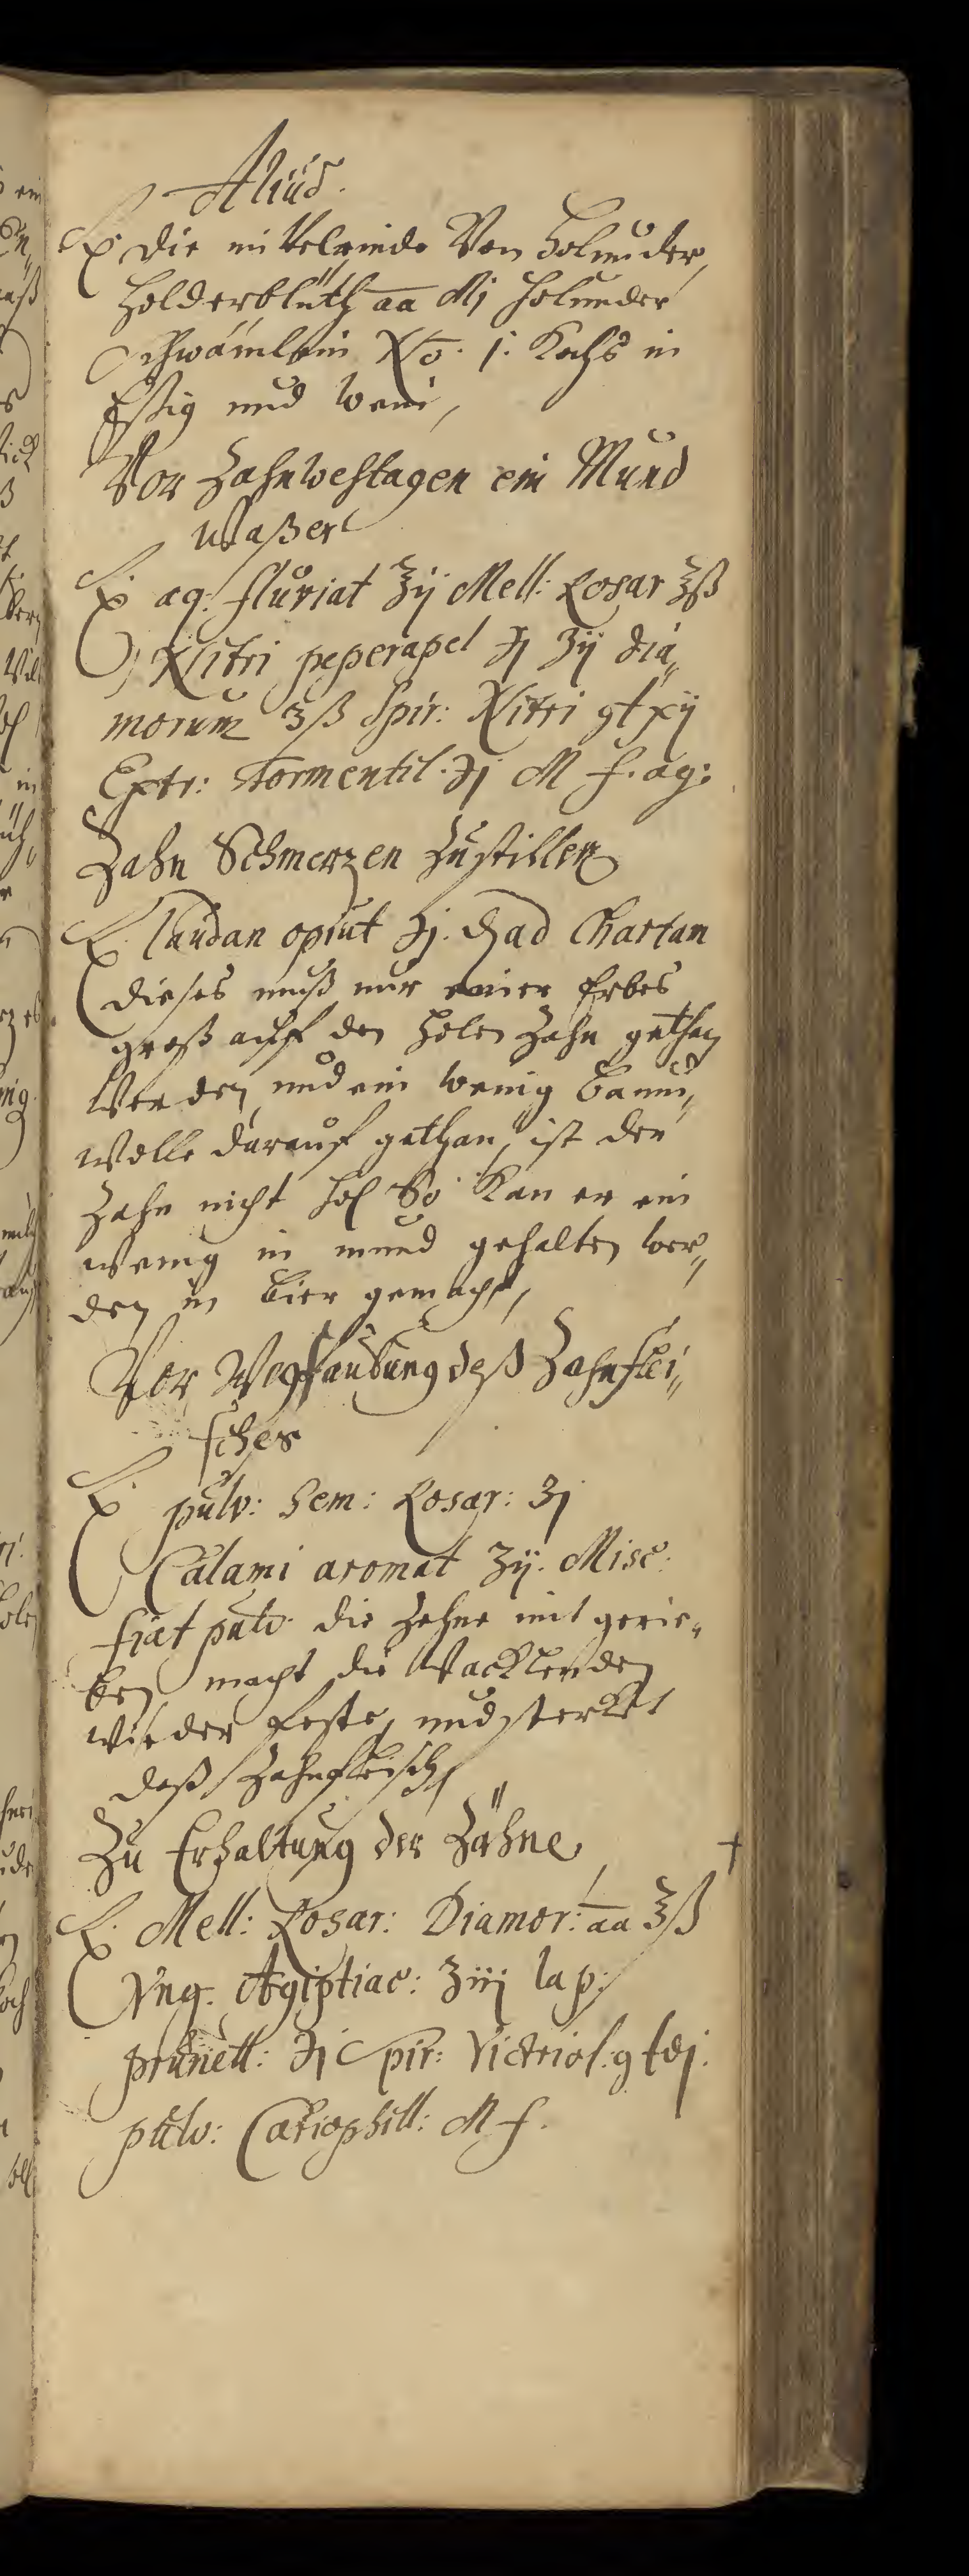 Aliud.
℞ die mittelrinde Von Holunder,
Holderblüth aa Mj Holunder
schwämlein No. j. Kochs in
Essig und wein,
Vor Zahnwehtagen ein Mund
Waßer
℞ aq. fluviat ℥ij Mell: Rosar ℥ß
Nitri ʒij dia„
morum ʒß Spir: Nitri gt xij
Extr: Tormentil. ℈j M f. aq:
Zahn Schmerzen Zu stillen
℞. Laudan opiat ℈j. ad Chartam
dieses muß nur einer Erbes
groß auff den holen Zahn gethan
Werden, und ein wenig baum„
wolle darauf gethan, ist der
Zahn nicht hol So Kan er ein
wenig in mund gehalten wer„
den in bier gemacht,
Vor Wegfaulung deß Zahnflei„
sches
℞ pulv: Sem: Rosar: ʒj
Calami aromat ʒij. Misc:
fiat pulv. die Zehne mit gerie„
ben macht die Wacklenden
wieder feste, und sterket
daß Zahnfleisch,
Zu Erhaltung der Zähne,
℞. Mell: Rosar: Diamor: aa ℥ß
Vng. Ægiptiac: ʒiij lap:
prunell: ℈j Spir: Victriol. g
pulv: Cariophill: M f.